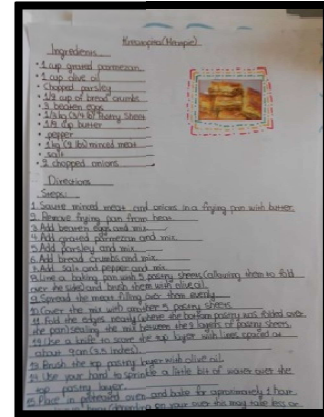 Kreatopita (Meatpie)
Ingredients
• 1 cup grated parmesan
• 1 cup olive oil
• Chopped parsley
• 1/2 cup of bread crumbs
• 3 beaten eggs
• pastry sheets
• 1/2 cup butter
• pepper
• 1kg (2 lbs) minced meat
• salt
• 2 chopped onions
Directions
Steps:
1. Saute minced meat and onions in a frying pan with butter.
2. Remove frying pan from heat.
3. Add beaten eggs and mix
4. Add grated parmesan and mix
5. Add parsley and mix
6. Add bread crumbs and mix
7. Add salt and pepper and mix
8. Line a baking pan with 5 pastry sheets (allowing them to fold
over the sides) and brush them with olive oil.
9. Spread the meat filling over them evenly
10. Cover the mix with another 5 pastry sheets
11. Fold the edges neatly (where the bottom pastry was folded over
the pan) sealing the mix between the 2 layers of pastry sheets.
12. Use a knife to score the top layer with lines spaced at
about 9cm (3.5 inches).
13. Brush the top pastry layer with olive oil.
14. Use your hand to sprinkle a little bit of water over the
top pastry layer.
15. Place in preheated oven and bake for aproximately 1 hour